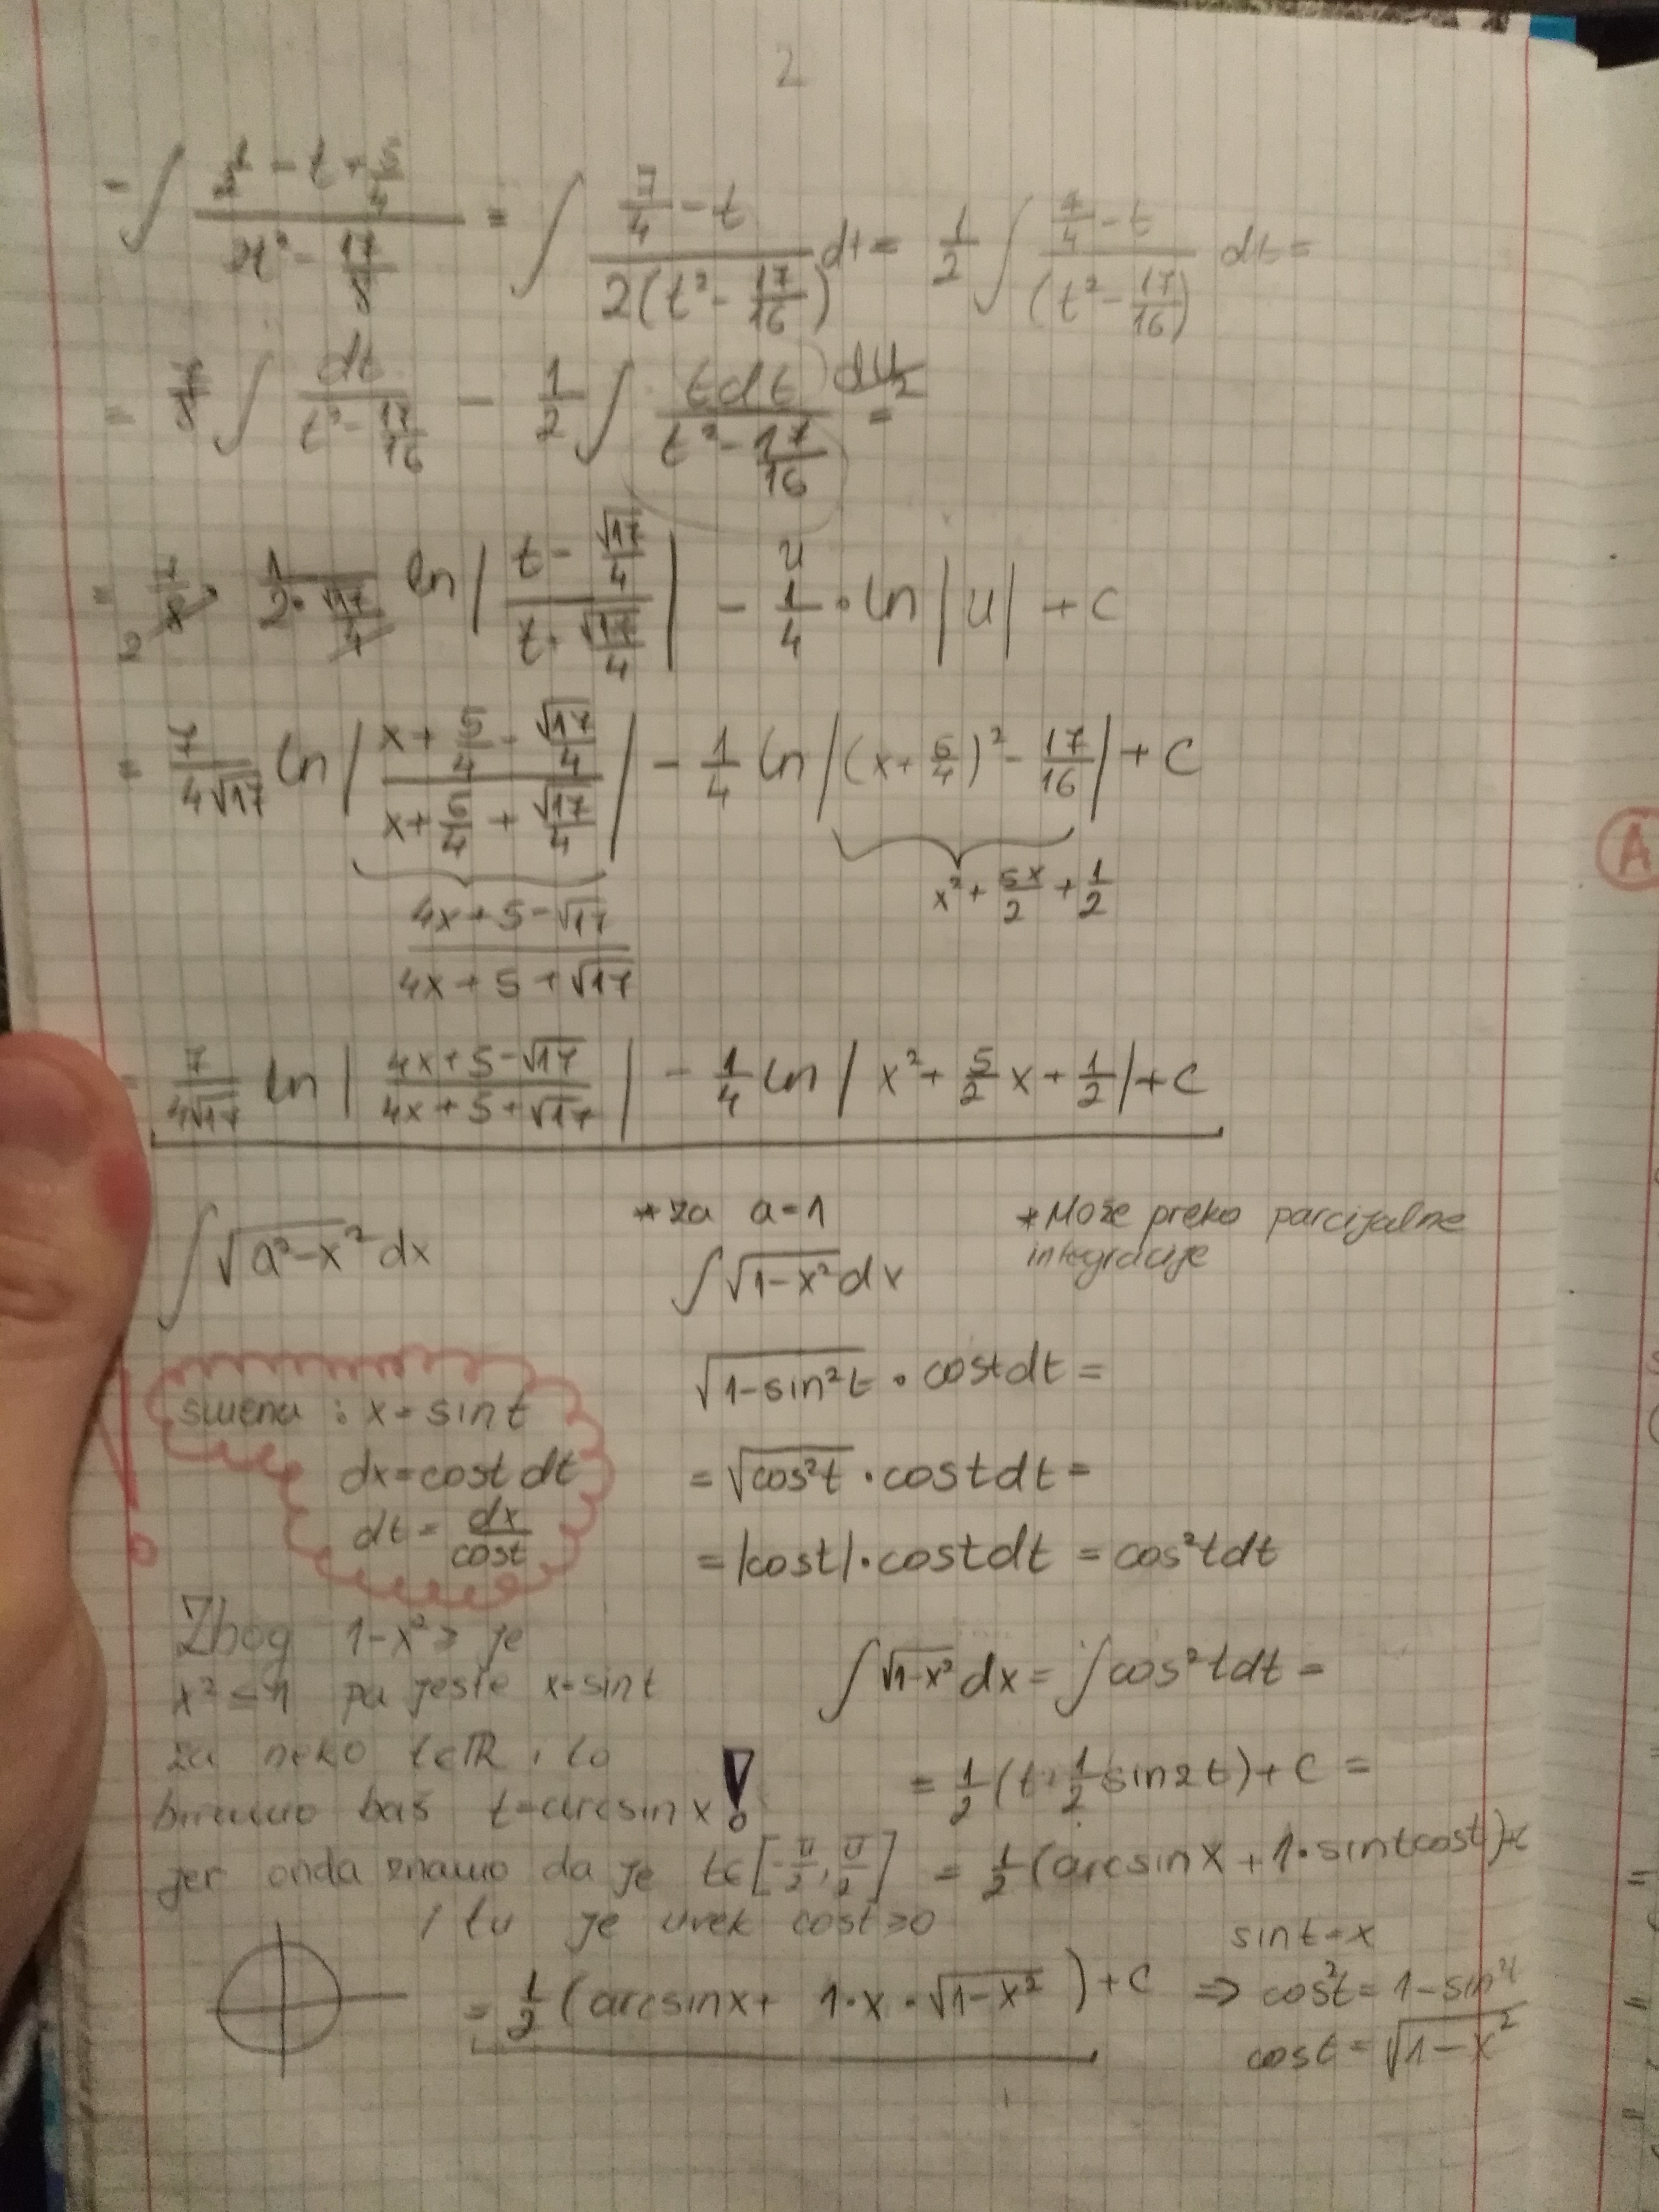 2
- ∫ (1/2 - t + 5/4)/(2t² - 17/8) = ∫ (7/4 - t)/(2(t² - 17/16)) dt = 1/2 ∫ (7/4 - t)/((t² - 17/16)) dt =
= 7/8 ∫ dt/(t² - 17/16) - 1/2 ∫ tdt/(t² - 17/16) du/2 =
u
= 7/8 · 1/(2·√17/4) ln | (t - √17/4)/(t + √17/4) | - 1/4 · ln |u| + C
2
= 7/(4√17) ln | (x + 5/4 - √17/4)/(x + 5/4 + √17/4) | - 1/4 ln | (x + 5/4)² - 17/16 | + C
x² + 5x/2 + 1/2
(4x + 5 - √17)/(4x + 5 + √17)
= 7/(4√17) ln | (4x + 5 - √17)/(4x + 5 + √17) | - 1/4 ln | x² + 5/2 x + 1/2 | + C
∫ √(a² - x²) dx
*za a = 1
∫ √(1 - x²) dx
*Može preko parcijalne
integracije
smena : x = sint
dx = cost dt
dt = dx/cost
√(1 - sin²t) · cost dt =
= √(cos²t) · cost dt =
= |cost| · cost dt = cos²t dt
Zbog 1 - x² ≥ je
x² ≤ 1 pa jeste x = sint
za neko t∈ℝ, to
biramo baš t = arcsin x !
jer onda znamo da je t∈[-π/2, π/2]
i tu je uvek cost ≥ 0
∫ √(1 - x²) dx = ∫ cos²t dt =
= 1/2 (t + 1/2 sin2t) + C =
= 1/2 (arcsin x + 1 · sint cost) + C
sint = x
⇒ cos²t = 1 - sin²t
cost = √(1 - x²)
= 1/2 (arcsin x + 1 · x · √(1 - x²)) + C
A